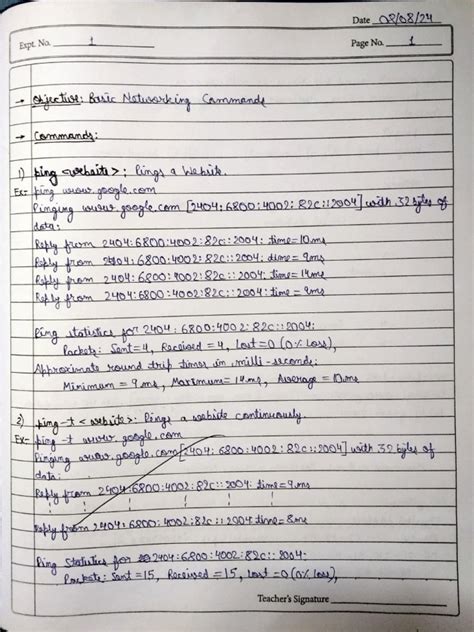 Date 02/08/24
Expt. No. 1
Page No. 1
→ Objective: Basic Networking Commands
→ Commands:
1) ping <website>: Pings a Website.
Ex- ping www.google.com
Pinging www.google.com [2404:6800:4002:82c::2004] with 32 bytes of
data:
Reply from 2404:6800:4002:82c::2004: time=10ms
Reply from 2404:6800:4002:82c::2004: time=9ms
Reply from 2404:6800:4002:82c::2004: time=14ms
Reply from 2404:6800:4002:82c::2004: time=9ms
Ping statistics for 2404:6800:4002:82c::2004:
Packets: Sent=4, Received=4, Lost=0 (0% Loss),
Approximate round trip times in milli-seconds:
Minimum = 9ms, Maximum=14ms, Average = 10ms
2) ping -t <website>: Pings a website continuously.
Ex- ping -t www.google.com
Pinging www.google.com [2404:6800:4002:82c::2004] with 32 bytes of
data:
Reply from 2404:6800:4002:82c::2004: time=9ms
Reply from 2404:6800:4002:82c::2004 time=8ms
Ping Statistics for 2404:6800:4002:82c::2004:
Packets: Sent=15, Received=15, Lost=0 (0% Loss),
Teacher's Signature